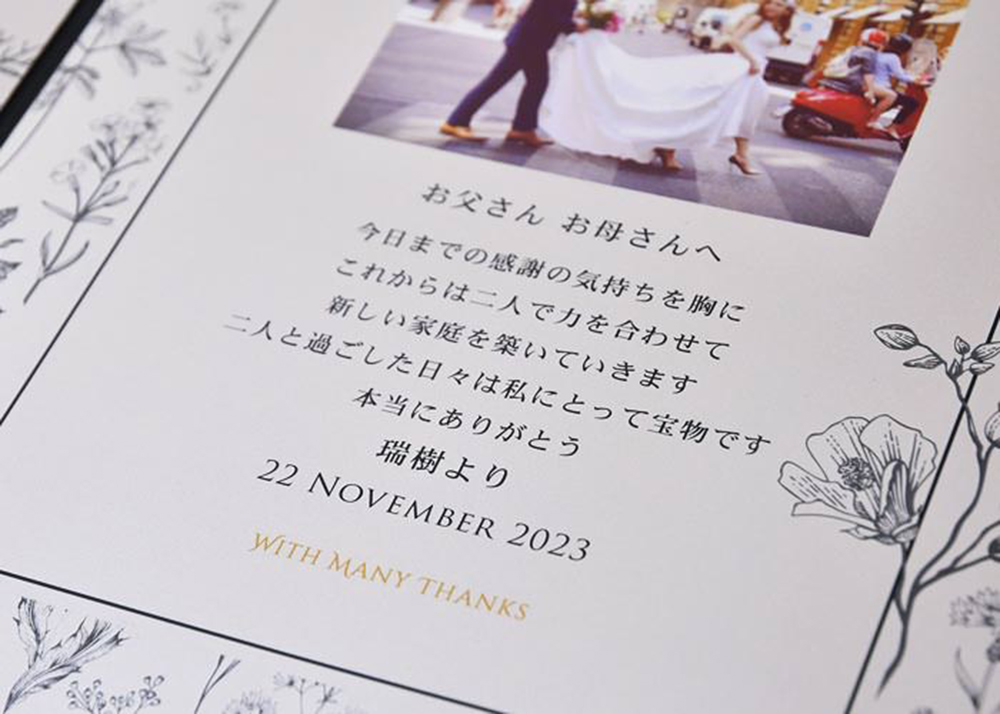 お父さん お母さんへ
今日までの感謝の気持ちを胸に
これからは二人で力を合わせて
新しい家庭を築いていきます
二人と過ごした日々は私にとって宝物です
本当にありがとう
瑞樹より
22 NOVEMBER 2023
WITH MANY THANKS